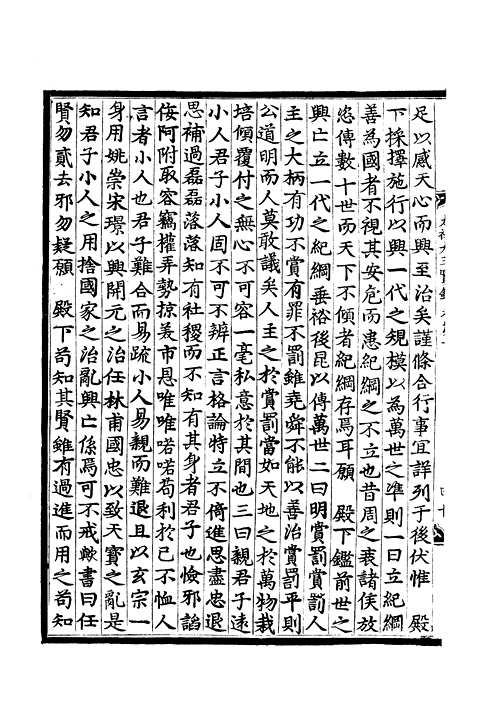 足以感天心而興至治矣謹條合行事宜詳列于後伏惟　殿
下採擇施行以興一代之規模以為萬世之準則一曰立紀綱
善為國者不視其安危而患紀綱之不立也昔周之衰諸侯放
恣傳數十世而天下不傾者紀綱存焉耳願　殿下鑑前世之
興亡立一代之紀綱垂裕後昆以傳萬世二曰明賞罰賞罰人
主之大柄有功不賞有罪不罰雖堯舜不能以善治賞罰平則
公道明而人莫敢議矣人主之於賞罰當如天地之於萬物栽
培傾覆付之無心不可容一毫私意於其間也三曰親君子遠
小人君子小人固不可不辨正言格論特立不倚進思盡忠退
思補過磊磊落落知有社稷而不知有其身者君子也憸邪諂
侫阿附取容竊權弄勢掠美市恩唯唯喏喏苟利於己不恤人
言者小人也君子難合而易疏小人易親而難退且以玄宗一
身用姚崇宋璟以興開元之治任林甫國忠以致天寶之亂是
知君子小人之用捨國家之治亂興亡係焉可不戒歟書曰任
賢勿貳去邪勿疑願　殿下苟知其賢雖有過進而用之苟知